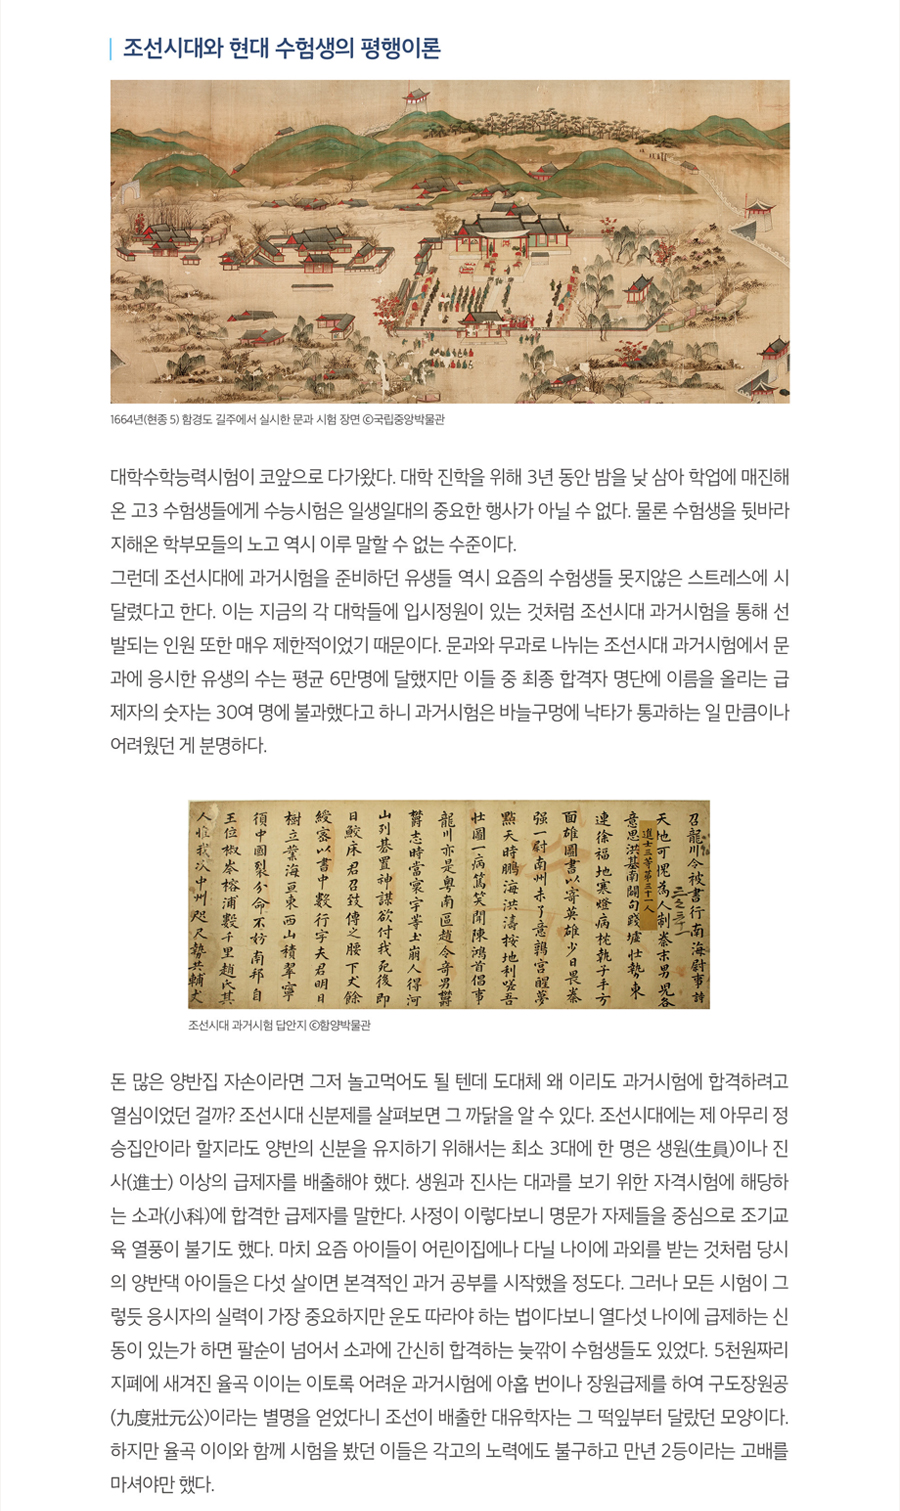 조선시대와 현대 수험생의 평행이론
1664년(현종 5) 함경도 길주에서 실시한 문과 시험 장면 ⓒ국립중앙박물관
대학수학능력시험이 코앞으로 다가왔다. 대학 진학을 위해 3년 동안 밤을 낮 삼아 학업에 매진해
온 고3 수험생들에게 수능시험은 일생일대의 중요한 행사가 아닐 수 없다. 물론 수험생을 뒷바라
지해온 학부모들의 노고 역시 이루 말할 수 없는 수준이다.
그런데 조선시대에 과거시험을 준비하던 유생들 역시 요즘의 수험생들 못지않은 스트레스에 시
달렸다고 한다. 이는 지금의 각 대학들에 입시정원이 있는 것처럼 조선시대 과거시험을 통해 선
발되는 인원 또한 매우 제한적이었기 때문이다. 문과와 무과로 나뉘는 조선시대 과거시험에서 문
과에 응시한 유생의 수는 평균 6만명에 달했지만 이들 중 최종 합격자 명단에 이름을 올리는 급
제자의 숫자는 30여 명에 불과했다고 하니 과거시험은 바늘구멍에 낙타가 통과하는 일 만큼이나
어려웠던 게 분명하다.
召龍川令被書行南海尉事詩
天地可愧為人制秦末男兒各
進士三等第三十一人
意思洪基南關句踐墟壯勢東
連徐福地寒燈病枕執子手方
面雄圖書以寄英雄少日畏秦
强一尉南州未了意鶉宮醒夢
點天時鵬海洪濤按地利嗟吾
壯圖一病篤笑聞陳鴻首倡事
龍川亦是粤南區趙令奇男欝
欝志時當寰宇等土崩人得河
山列碁置神謀欲付我死後即
日鮫床君召致傳之腰下犬餘
綬密以書中數行字夫君明日
樹立業海亘東西山積翠寧
須中國裂分命不妨南邦自
王位椒岑榕浦數千里趙氏其
人惟我次中州咫尺勢共輔犬
조선시대 과거시험 답안지 ⓒ함양박물관
돈 많은 양반집 자손이라면 그저 놀고먹어도 될 텐데 도대체 왜 이리도 과거시험에 합격하려고
열심이었던 걸까? 조선시대 신분제를 살펴보면 그 까닭을 알 수 있다. 조선시대에는 제 아무리 정
승집안이라 할지라도 양반의 신분을 유지하기 위해서는 최소 3대에 한 명은 생원(生員)이나 진
사(進士) 이상의 급제자를 배출해야 했다. 생원과 진사는 대과를 보기 위한 자격시험에 해당하
는 소과(小科)에 합격한 급제자를 말한다. 사정이 이렇다보니 명문가 자제들을 중심으로 조기교
육 열풍이 불기도 했다. 마치 요즘 아이들이 어린이집에나 다닐 나이에 과외를 받는 것처럼 당시
의 양반댁 아이들은 다섯 살이면 본격적인 과거 공부를 시작했을 정도다. 그러나 모든 시험이 그
렇듯 응시자의 실력이 가장 중요하지만 운도 따라야 하는 법이다보니 열다섯 나이에 급제하는 신
동이 있는가 하면 팔순이 넘어서 소과에 간신히 합격하는 늦깎이 수험생들도 있었다. 5천원짜리
지폐에 새겨진 율곡 이이는 이토록 어려운 과거시험에 아홉 번이나 장원급제를 하여 구도장원공
(九度壯元公)이라는 별명을 얻었다니 조선이 배출한 대유학자는 그 떡잎부터 달랐던 모양이다.
하지만 율곡 이이와 함께 시험을 봤던 이들은 각고의 노력에도 불구하고 만년 2등이라는 고배를
마셔야만 했다.